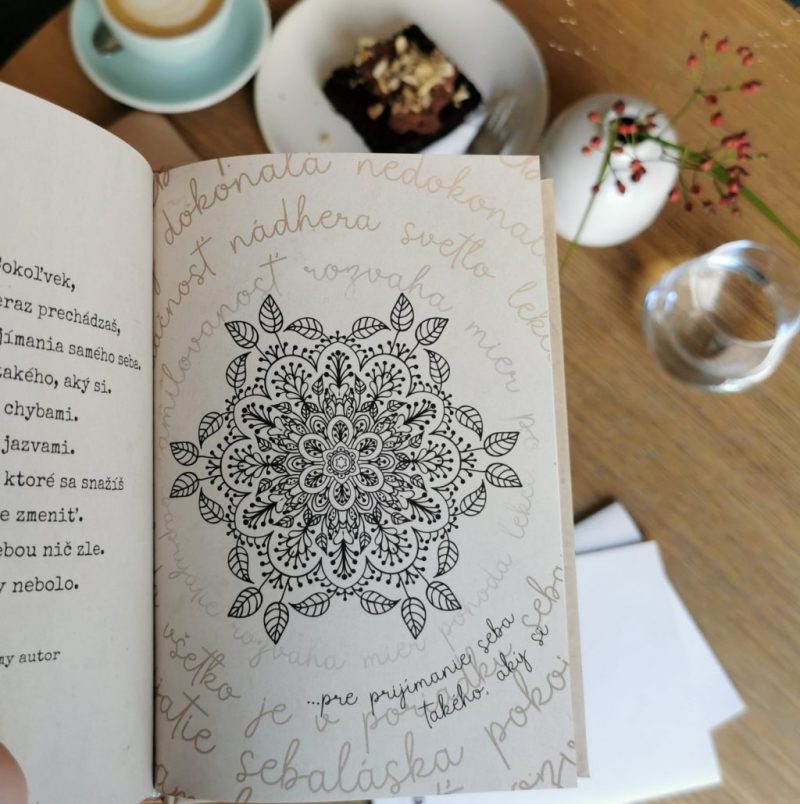 okoľvek,
eraz prechádzaš,
jímania samého seba.
takého, aký si.
chybami.
jazvami.
ktoré sa snažíš
e zmeniť.
ebou nič zle.
y nebolo.
my autor
dokonalá nedokonal
čnosť nádhera svetlo leki
milovanosť rozvaha mier po
aprijatie rozvaha mier pohoda leki
všetko je v poriadku seba
jatie sebaláska pokoj
...pre prijímanie seba
takého, aký si